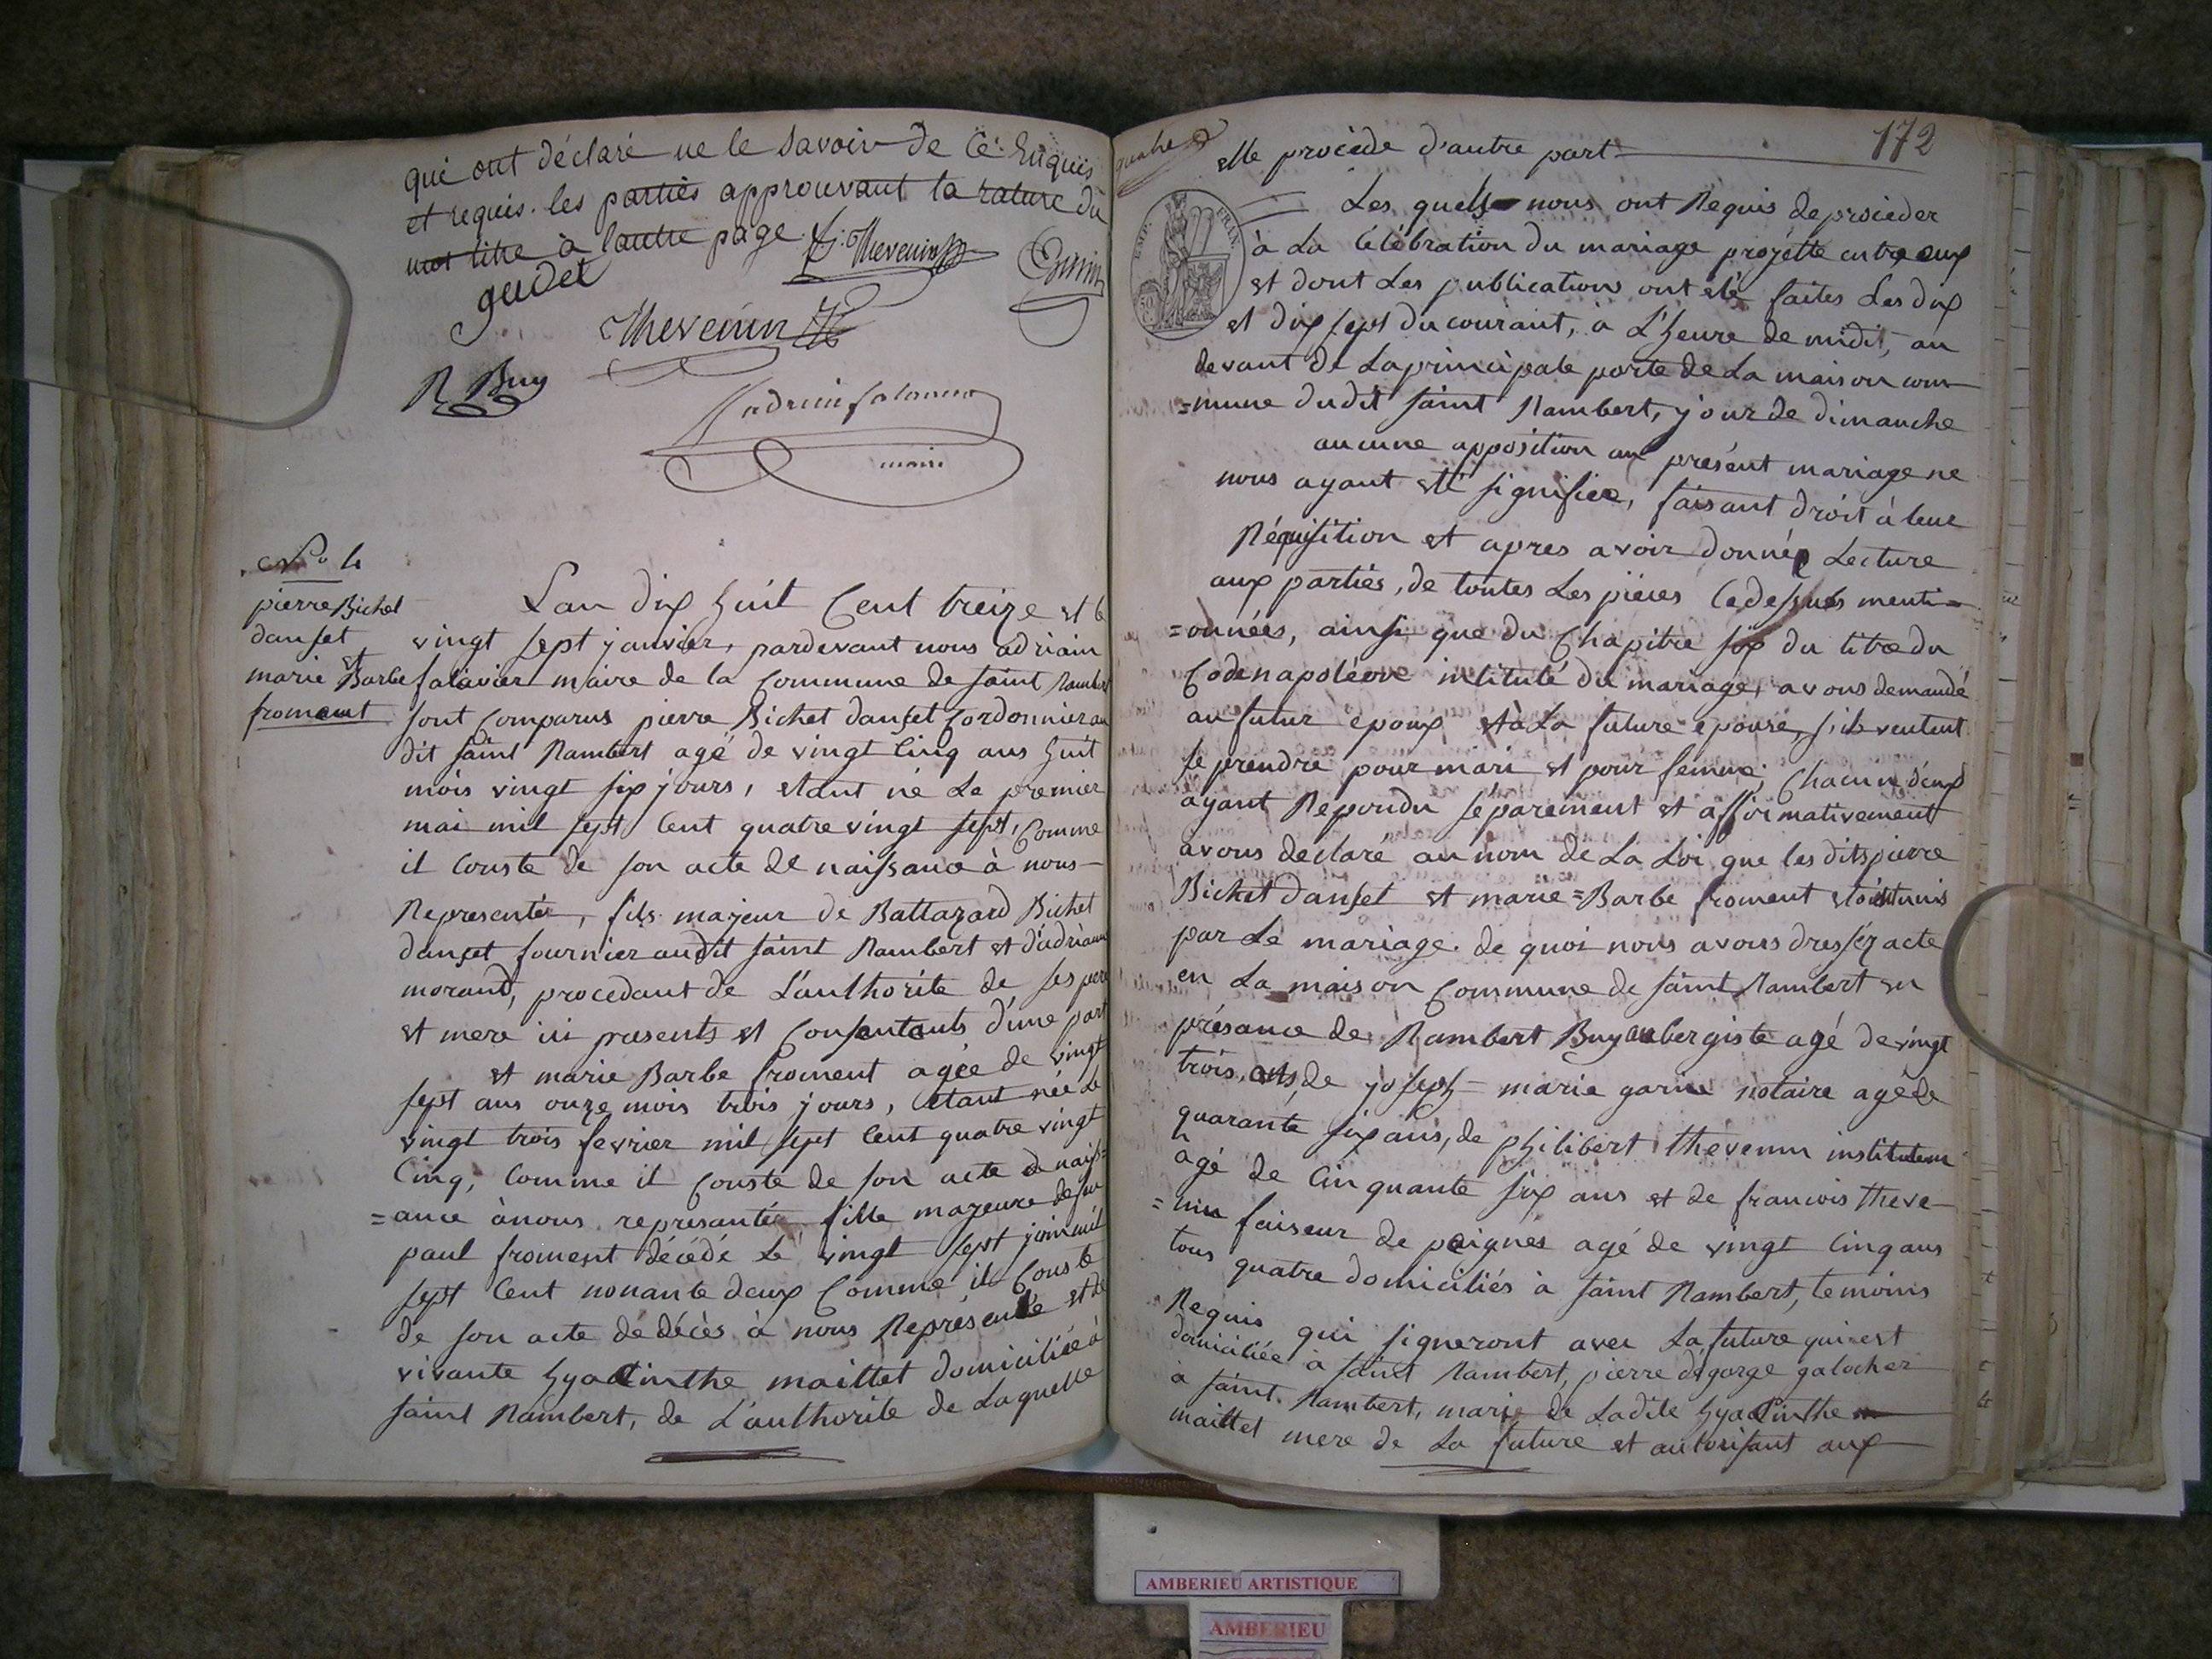 qui ont déclaré ne le Savoir de Cé Enquis
et requis. les parties approuvant la rature du
mot titre à l'autre page. f. Thevenin
gudet
Thevenin
R Buy
maire
N.o 4
pierre Bichet
danset
et
marie Barbe
froment
L'an dix huit Cent treize et le
vingt sept janvier, pardevant nous adriain
salavier maire de la Commune de saint Rambert
sont Comparus pierre Bichet danset Cordonnier au
dit saint Rambert agé de vingt Cinq ans huit
mois vingt six jours, etant né Le premier
mai mil sept Cent quatre vingt sept, Comme
il Conste de son acte de naissance à nous
Representé, fils majeur de Baltazard Bichet
danset fournier audit saint Rambert et d'adrianne
morand, procedant de L'authorité de ses pere
et mere ici presents et Consentants d'une part
et marie Barbe froment agée de vingt
sept ans onze mois trois jours, étant née Le
vingt trois fevrier mil sept Cent quatre vingt
Cinq, Comme il Conste de son acte de naiss=
=ance à nous representée fille majeure de feu
paul froment décédé Le vingt sept juin mil
sept Cent nonante deux Comme il Conste
de son acte de décès à nous Représenté et de
vivante hyacinthe maillet domiciliée à
saint Rambert, de L'authorité de Laquelle
172
elle procède d'autre part
EMP. FRAN.
50
Les quels nous ont Requis de procéder
à La Célébration du mariage projetté entre eux
et dont Les publications ont été faites Les dix
et dix sept du courant, a L'heure de midi, au
devant de La principale porte de La maison com
=mune dudit saint Rambert, jour de dimanche
aucune apposition au présent mariage ne
nous ayant été signifiée, faisant droit à leur
Réquisition et apres avoir donnée Lecture
aux parties, de toutes Les pièces Cedessus menti=
=onnées, ainsi que du Chapitre six du titre du
Code napoléon intitulé du mariage, avons demandé
au futur epoux et à La future epouse, s'ils veulent
se prendre pour mari et pour femme; Chacun d'eux
ayant Repondu séparement et affirmativement
avons déclaré au nom de La Loi que les dits pierre
Bichet danset et marie=Barbe froment etoient unis
par Le mariage. de quoi nous avons dressez acte
en La maison Commune de saint Rambert en
présance de Rambert Buy aubergiste agé de vingt
trois ans, de joseph=marie garin notaire agé de
quarante six ans, de philibert thevenin instituteur
agé de Cinquante six ans et de francois theve-
=nin faiseur de peignes agé de vingt Cinq ans
tous quatre domiciliés à saint Rambert, temoins
Requis qui signeront avec La future qui est
domiciliée à saint Rambert, pierre degorge galocher
à saint Rambert, mari de Ladite hyacinthe
maillet mere de La future et autorisant aux
AMBERIEU ARTISTIQUE
AMBERIEU